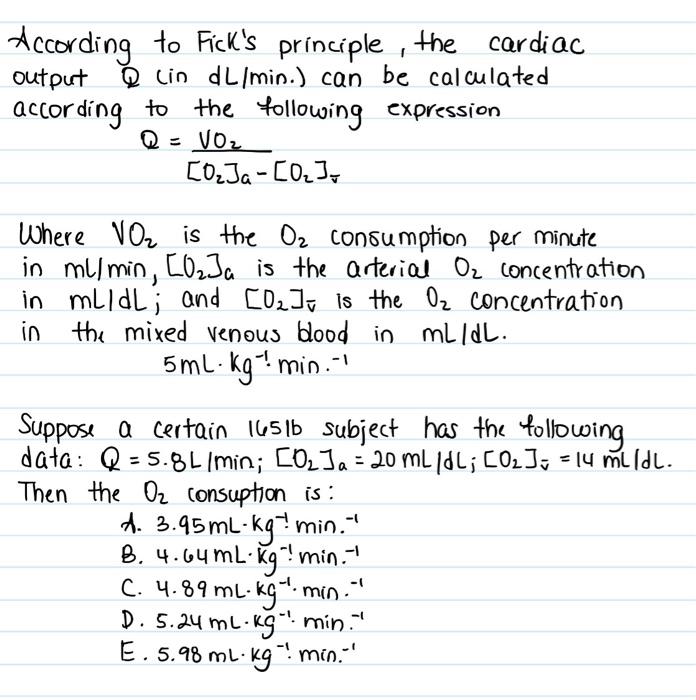 According to Fick's principle, the cardiac
output Q (in dL/min.) can be calculated
according to the following expression
Q = VO₂
[O₂]a - [O₂]v̄
Where VO₂ is the O₂ consumption per minute
in ml/min, [O₂]a is the arterial O₂ concentration
in mL/dL; and [O₂]v̄ is the O₂ concentration
in the mixed venous blood in mL/dL.
5mL·kg⁻¹·min.⁻¹
Suppose a certain 165lb subject has the following
data: Q = 5.8L/min; [O₂]a = 20 mL/dL; [O₂]v̄ = 14 mL/dL.
Then the O₂ consuption is:
A. 3.95mL·kg⁻¹·min.⁻¹
B. 4.64mL·kg⁻¹·min.⁻¹
C. 4.89 mL·kg⁻¹·min.⁻¹
D. 5.24 mL·kg⁻¹·min.⁻¹
E. 5.98 mL·kg⁻¹·min.⁻¹